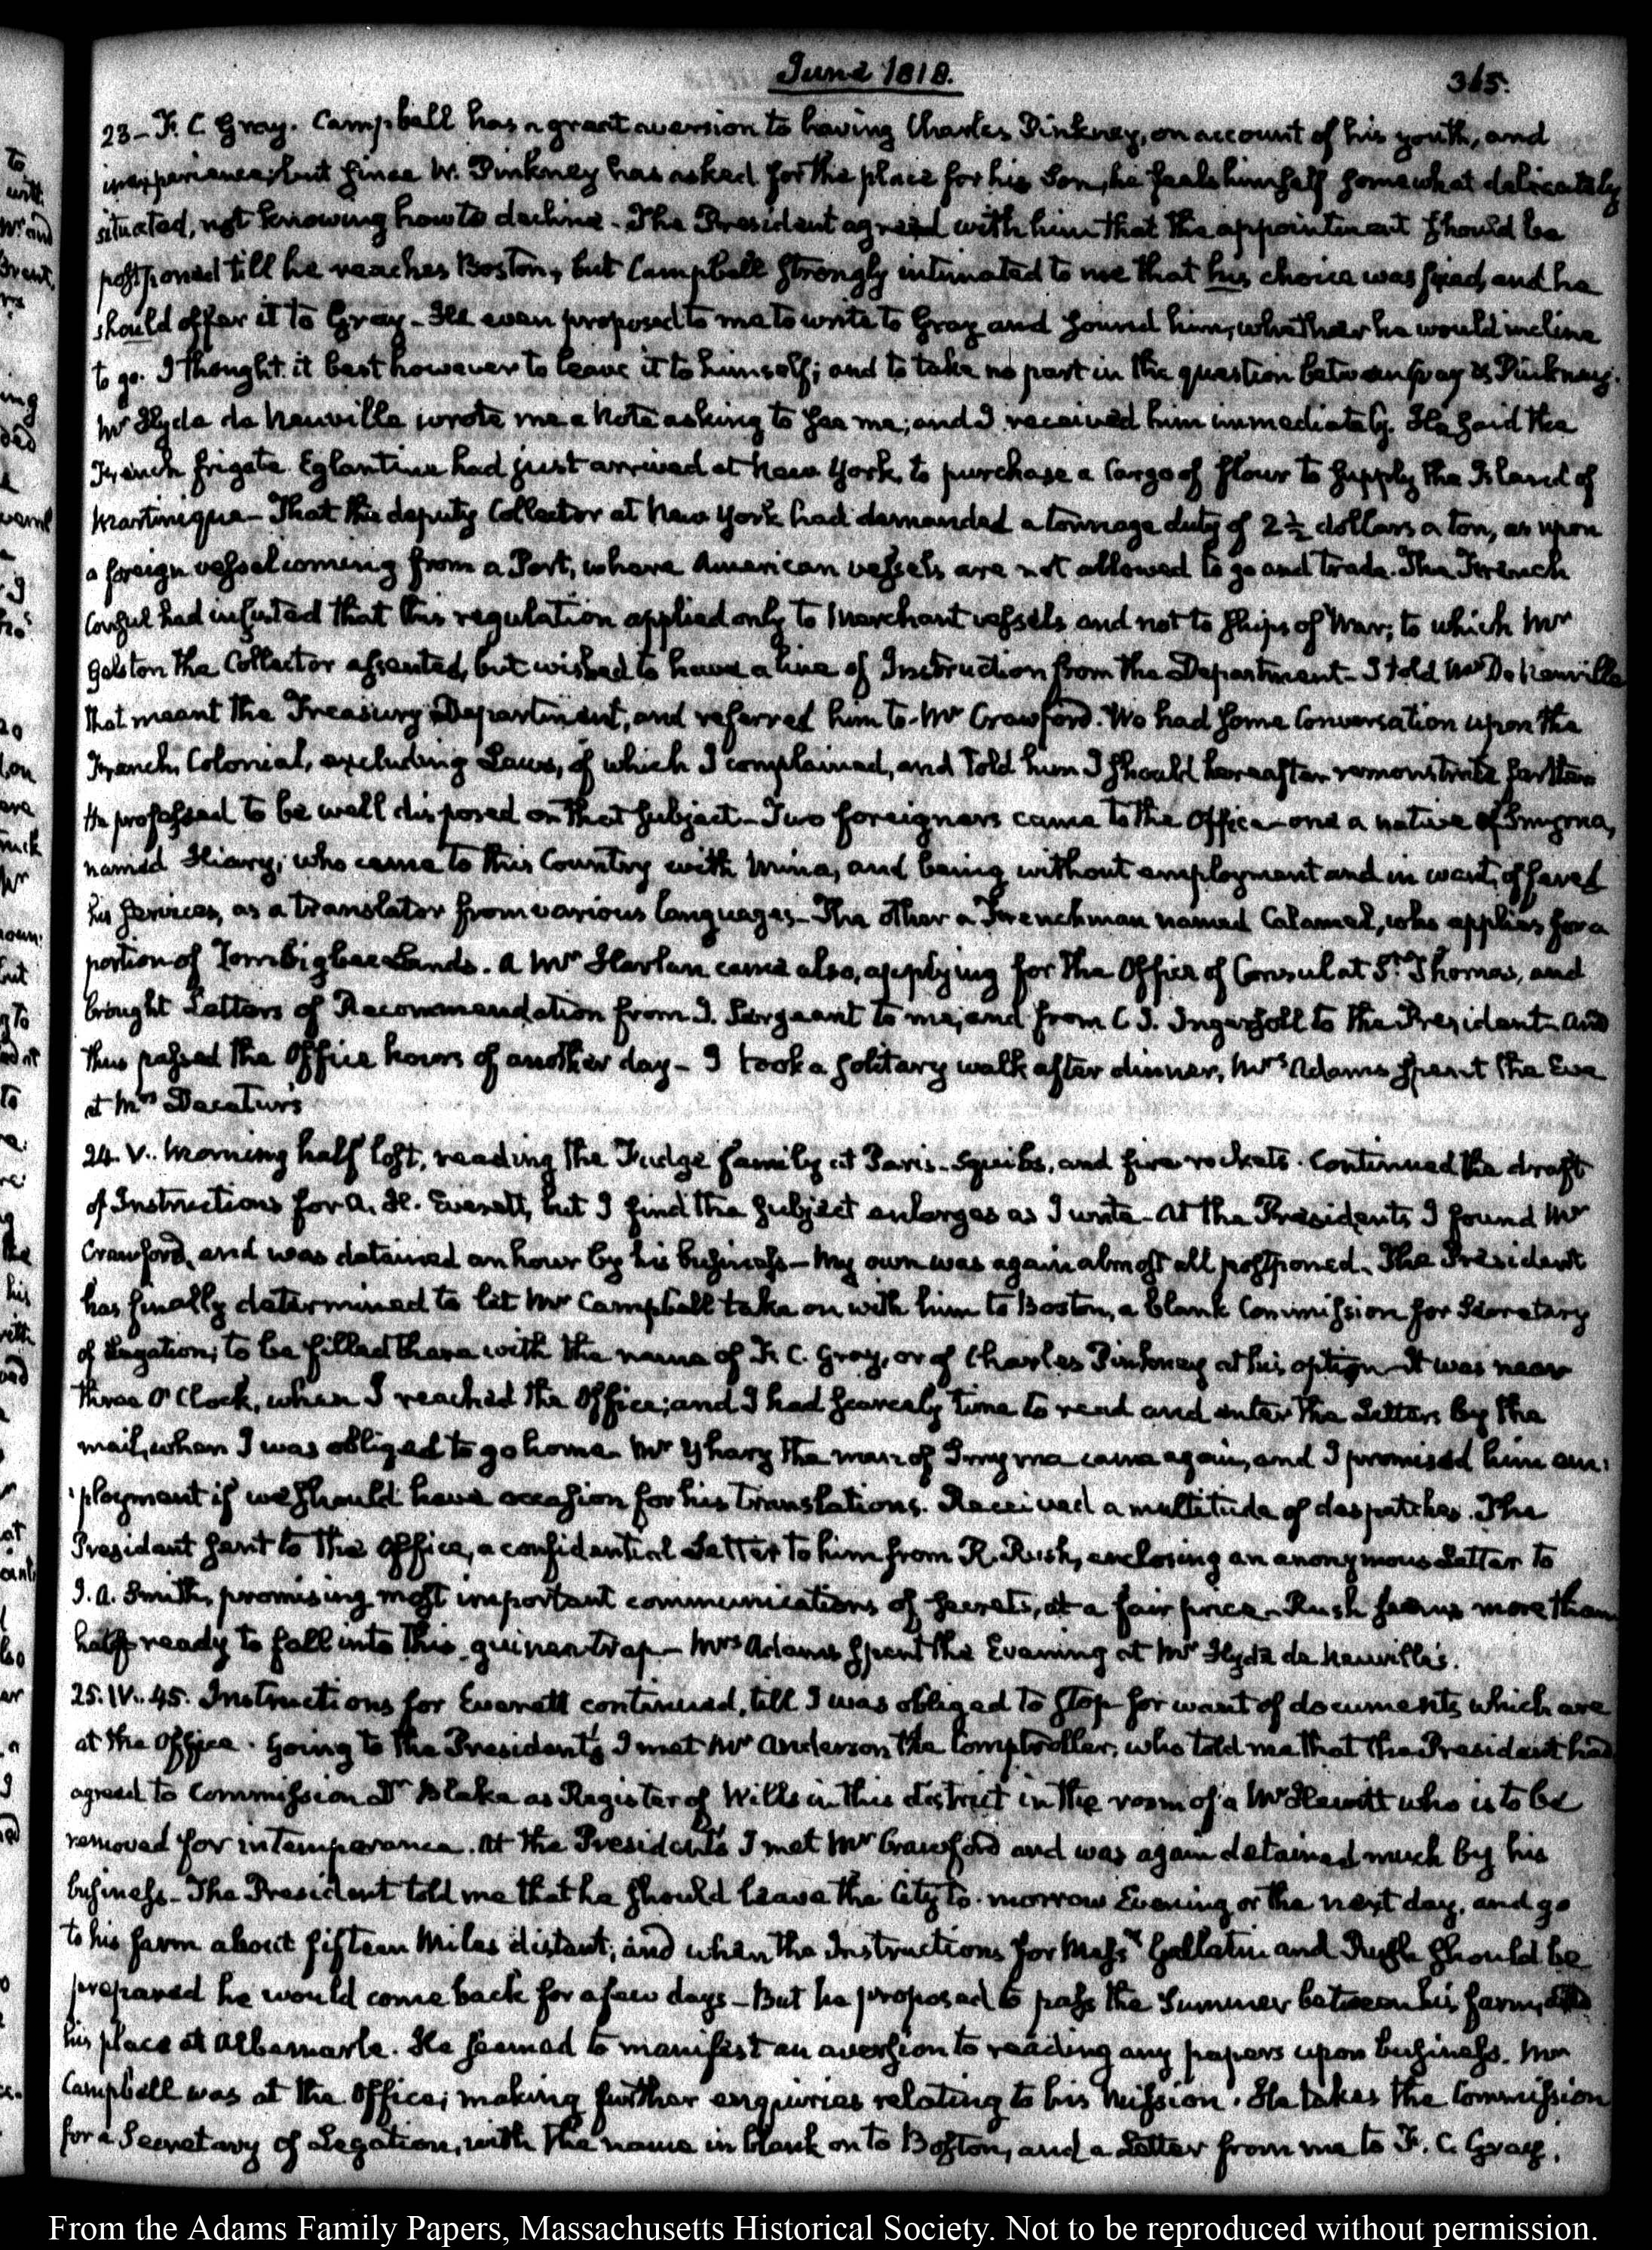 June 1818.
365.
23 - F. C. Gray. Campbell has a great aversion to having Charles Pinkney, on account of his youth, and
inexperience; but since W. Pinkney has asked for the place for his Son, he feels himself somewhat delicately
situated, not knowing how to decline - The President agreed with him that the appointment should be
postponed till he reaches Boston, but Campbell strongly intimated to me that his choice was fixed, and he
should offer it to Gray - He even proposed to me to write to Gray and sound him, whether he would incline
to go. I thought it best however to leave it to himself; and to take no part in the question between Gray & Pinkney.
Mr Hyde de Neuville wrote me a Note asking to see me; and I received him immediately. He said the
French frigate Eglantine had just arrived at New York, to purchase a Cargo of flour to supply the Island of
Martinique - That the deputy Collector at New York had demanded a tonnage duty of 2½ dollars a ton, as upon
a foreign vessel coming from a Port, where American vessels are not allowed to go and trade. The French
Consul had insisted that this regulation applied only to Merchant vessels and not to ships of War; to which Mr
Gelston the Collector assented, but wished to have a line of Instruction from the Department - I told Mr De Neuville
that meant the Treasury Department, and referred him to Mr Crawford. We had some Conversation upon the
French, Colonial, excluding Laws, of which I complained, and told him I should hereafter remonstrate further
He professed to be well disposed on that subject - Two foreigners came to the Office - one a native of Smyrna,
named Hiary, who came to this Country with Mina, and being without employment and in want, offered
his services, as a translator from various languages - The other a Frenchman named Calamel, who applies for a
portion of Tombigbee Lands. A Mr Harlan came also, applying for the Office of Consul at St. Thomas, and
brought Letters of Recommendation from J. Sergeant to me, and from C. J. Ingersoll to the President - And
thus passed the Office hours of another day - I took a solitary walk after dinner, Mrs Adams spent the Eve
at Mrs Decatur's
24. V.. Morning half lost, reading the Fudge family at Paris - Squibs, and fire rockets. Continued the draft
of Instructions for A. H. Everett, but I find the subject enlarges as I write - At the Presidents I found Mr
Crawford, and was detained an hour by his business - My own was again almost all postponed. The President
has finally determined to let Mr Campbell take on with him to Boston, a blank Commission for Secretary
of Legation; to be filled there with the name of F. C. Gray, or of Charles Pinkney at his option - It was near
three O'Clock, when I reached the Office; and I had scarcely time to read and enter the Letters by the
mail, when I was obliged to go home - Mr Yhary the man of Smyrna came again, and I promised him em:
:ployment if we should have occasion for his translations. Received a multitude of despatches. The
President sent to the Office, a confidential Letter to him from R. Rush, enclosing an anonymous Letter to
J. A. Smith, promising most important communications of secrets, at a fair price - Rush seems more than
half ready to fall into this guinea trap - Mrs Adams spent the Evening at Mr Hyde de Neuville's.
25. IV.. 45. Instructions for Everett continued, till I was obliged to stop for want of documents which are
at the Office. Going to the President's I met Mr Anderson the Comptroller, who told me that the President had
agreed to Commission Dr Blake as Register of Wills in this district in the room of a Mr Hewitt who is to be
removed for intemperance. At the President's I met Mr Crawford and was again detained much by his
business - The President told me that he should leave the City to-morrow Evening or the next day, and go
to his farm about fifteen Miles distant; and when the Instructions for Messrs Gallatin and Rush should be
prepared he would come back for a few days - But he proposed to pass the Summer between his farm, and
his place at Albemarle. He seemed to manifest an aversion to reading any papers upon business. Mr
Campbell was at the Office; making further enquiries relating to his Mission. He takes the Commission
for a Secretary of Legation, with the name in blank on to Boston, and a Letter from me to F. C. Gray.
From the Adams Family Papers, Massachusetts Historical Society. Not to be reproduced without permission.